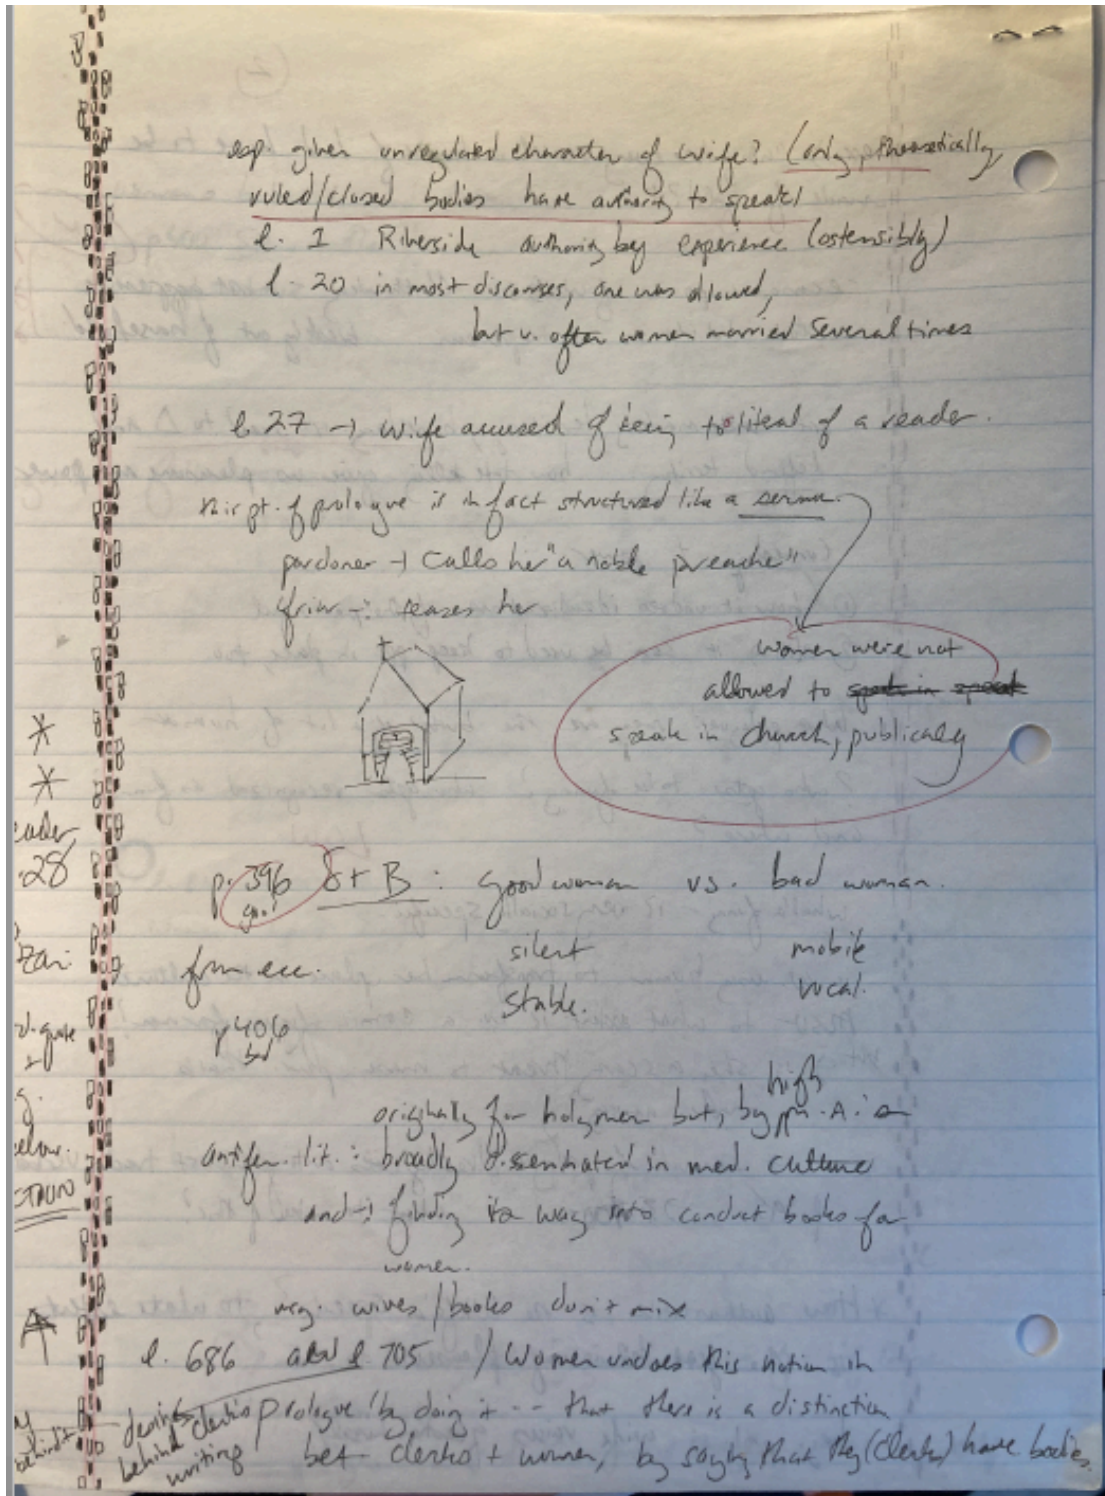 esp. given unregulated character of wife? (only, theoretically
ruled/closed bodies have authority to speak)
l. 1 Riverside authority by experience (ostensibly)
l. 20 in most discourses, one was allowed,
but v. often women married several times
l. 27 → wife accused of being to literal of a reader.
this pt. of prologue is in fact structured like a sermon.
pardoner → calls her "a noble preacher"
friar → teases her
women were not
allowed to
speak in church, publically
p. 396 & + B : good woman vs. bad woman.
good
silent mobile
from ecc.
stable. vocal.
p 406
bad
high
originally for holy men but, by
antifem. lit. : broadly disseminated in med. culture
and → finding its way into conduct books for
women.
msg. wives / books don't mix
l. 686 and l. 705 / Women undoes this notion in
prologue by doing it -- that there is a distinction
bet clerks + women, by saying that they (clerks) have bodies.
desires
behind clerks
writing
28
quote
below.
behind